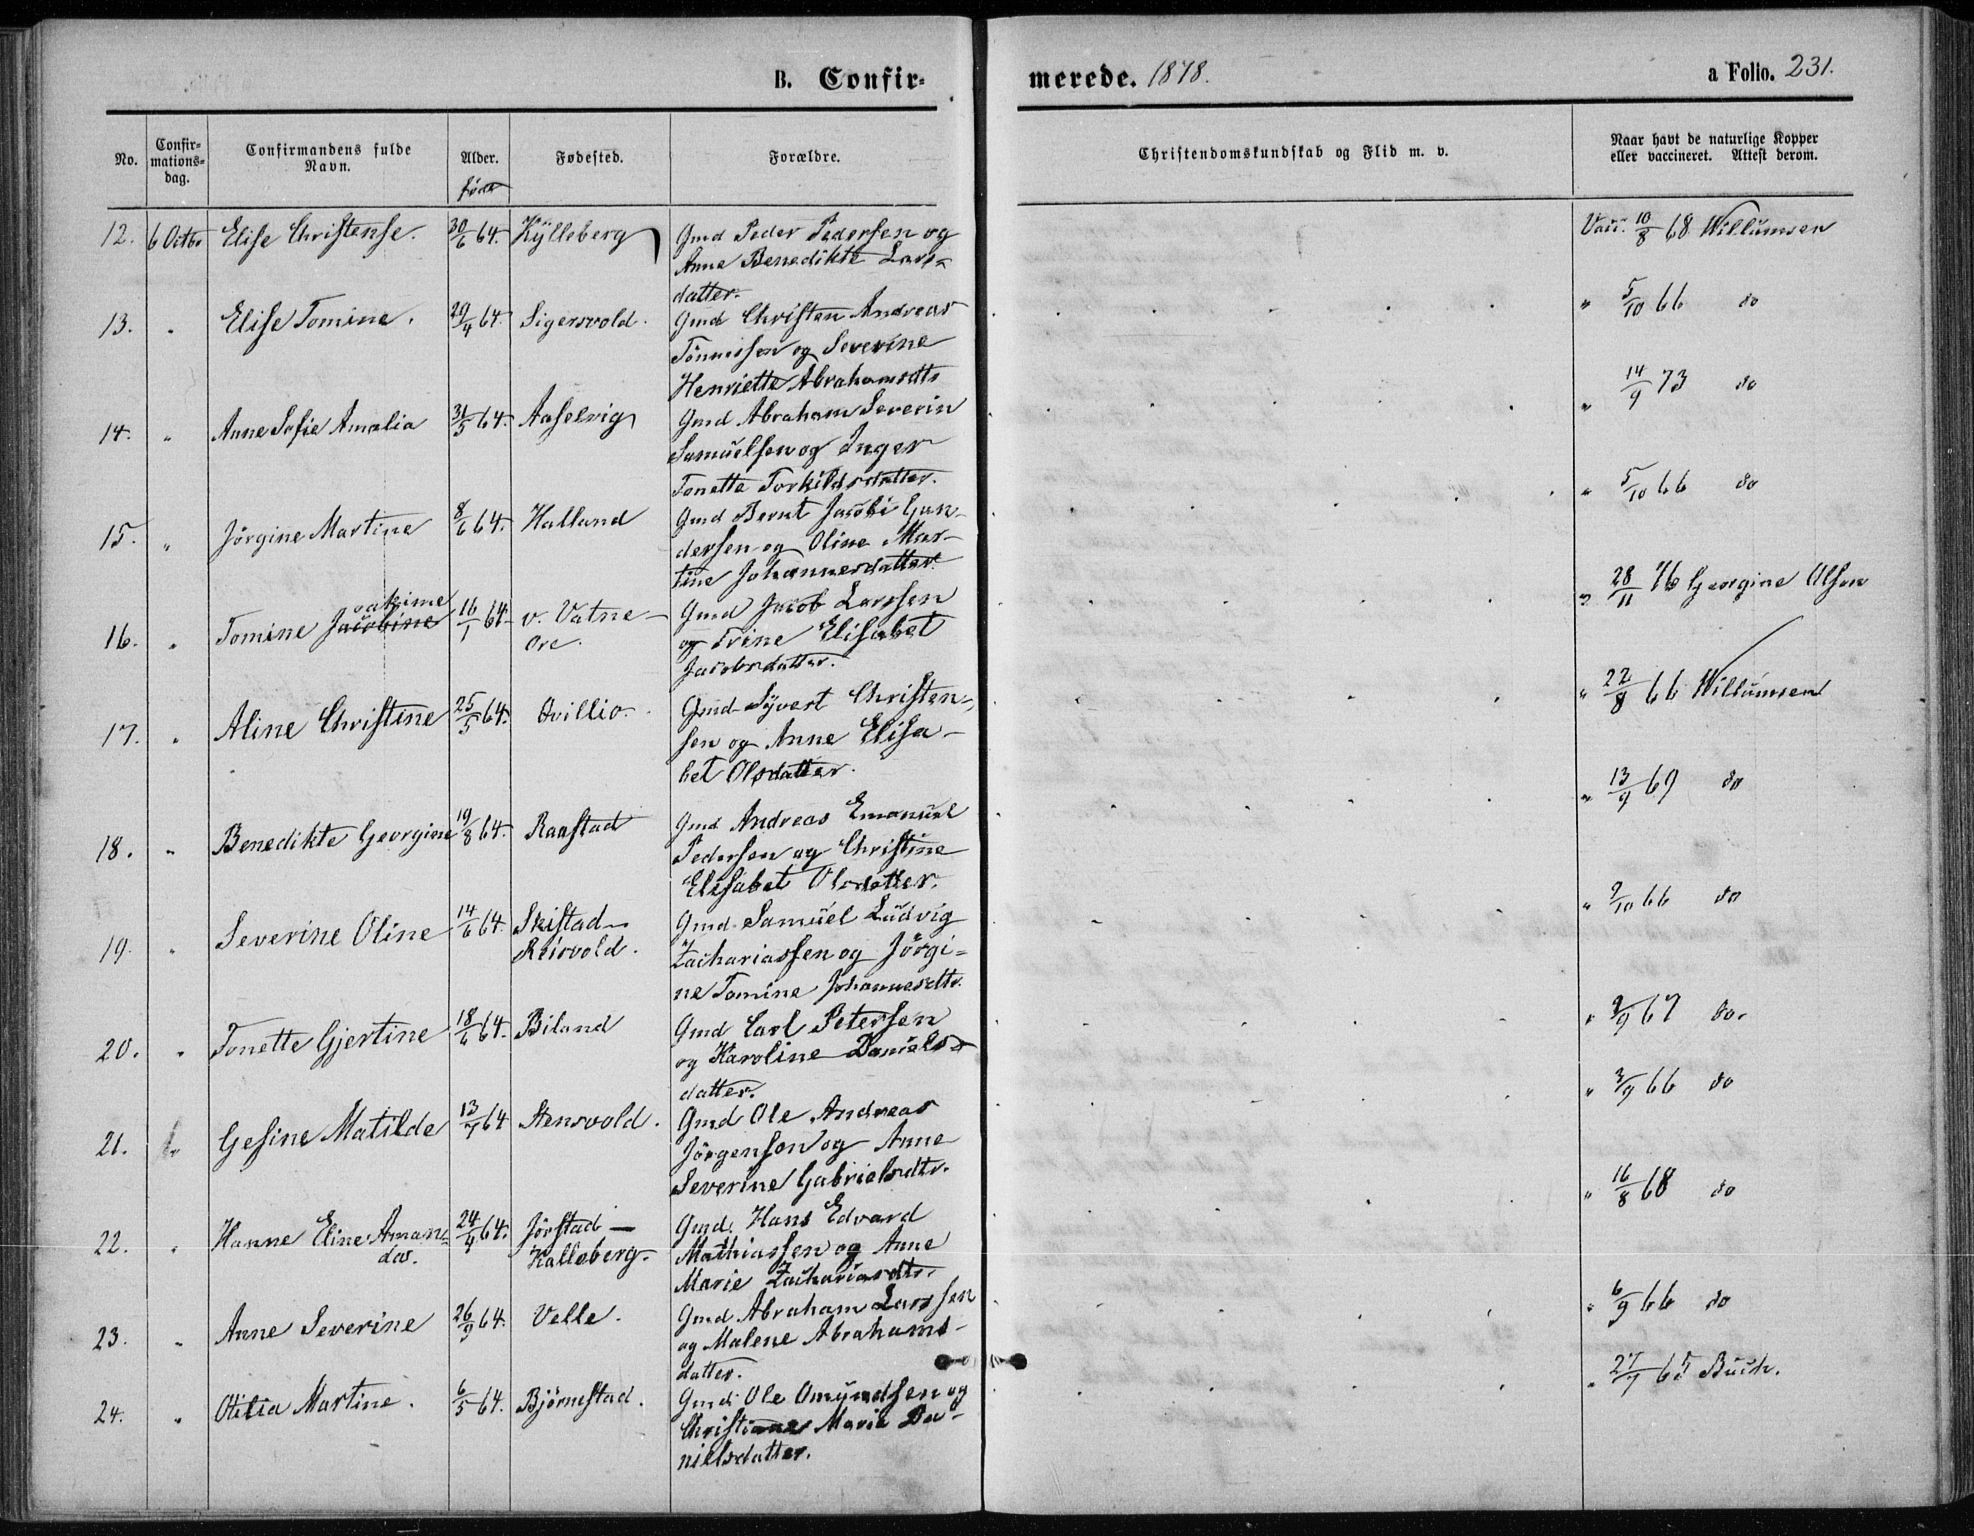 B. Confir-
merede. 1878.
a Folio. 231.
No.
Confir-
mations-
dag.
Confirmandens fulde
Navn.
Alder.
født
Fødested.
Forældre.
Christendomskundskab og Flid m. v.
Naar havt de naturlige Kopper
eller vaccineret. Attest derom.
12. 6 Octbr Elise Christense. 30/6 64. Kylleberg Gmd Peder Pedersen og
Anne Benedikte Lars-
datter.
Vacc. 10/8 68 Willumsen
13. " Elise Tomine. 29/4 64. Sigersvold. Gmd Christen Andreas
Tönnessen og Severine
Henriette Abrahamsdtr
" 5/10 66 do
14. " Anne Sofie Amalia 31/5 64. Aaselvig Gmd Abraham Severin
Samuelsen og Inger
Tonette Torkildsdatter.
" 14/9 73 do
15. " Jörgine Martine 8/6 64. Halland Gmd Bernt Jacobi Gun-
dersen og Oline Mar-
tine Johannesdatter
" 5/10 66 do
oakime
16. " Tomine Jacobine 16/1 64 v. Vatne- Gmd Jacob Larssen
ore. og Trine Elisabet
Jacobsdatter.
" 28/11 76 Georgine Olsen
17. " Aline Christine 25/5 64. Qvillio. Gmd Syvert Christen-
sen og Anne Elisa-
bet Olsdatter.
" 22/8 66 Willumsen
18. " Benedikte Georgine 19/8 64. Raastad Gmd Andreas Emanuel
Pedersen og Christine
Elisabet Olsdatter.
" 13/9 69 do
19. " Severine Oline 14/6 64. Skistad- Gmd. Samuel Ludvig
Reisvold. Zachariassen og Jörgi-
ne Tomine Johannesdtr.
" 9/10 66 do
20. " Tonette Gjertine 18/6 64. Biland Gmd Carl Petersen
og Karoline Daniels-
datter.
" 3/9 67 do.
21. " Gesine Matilde 13/7 64 Stensvold. Gmd Ole Andreas
Jörgenson og Anne
Severine Gabrielsdtr.
" 3/9 66 do
22. " Hanne Eline Aman- 24/4 64. Jörstad- Gmd. Hans Edvard
da. Kalleberg. Mathiassen og Anne
Marie Zachariasdtr.
" 16/8 68 do
23. " Anne Severine 26/9 64. Velle. Gmd Abraham Larssen
og Malene Abrahams-
datter.
" 6/9 66 do
24. " Otilia Martine. 6/5 64. Björnestad. Gmd Ole Omundsen og
Christiane Marie Da-
nielsdatter.
" 27/7 65 Buch.